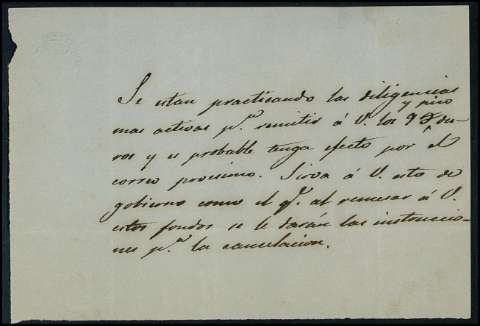 Se estan practicando las diligencias
mas activas p.ª remitir á V. los 95 y pico du-
ros y es probable tenga efecto por el
correo procsimo. Sirva á V. esto de
gobierno como el q.e al remesar á V.
estos fondos se le darán las instruccio-
nes p.ª la cancelacion.